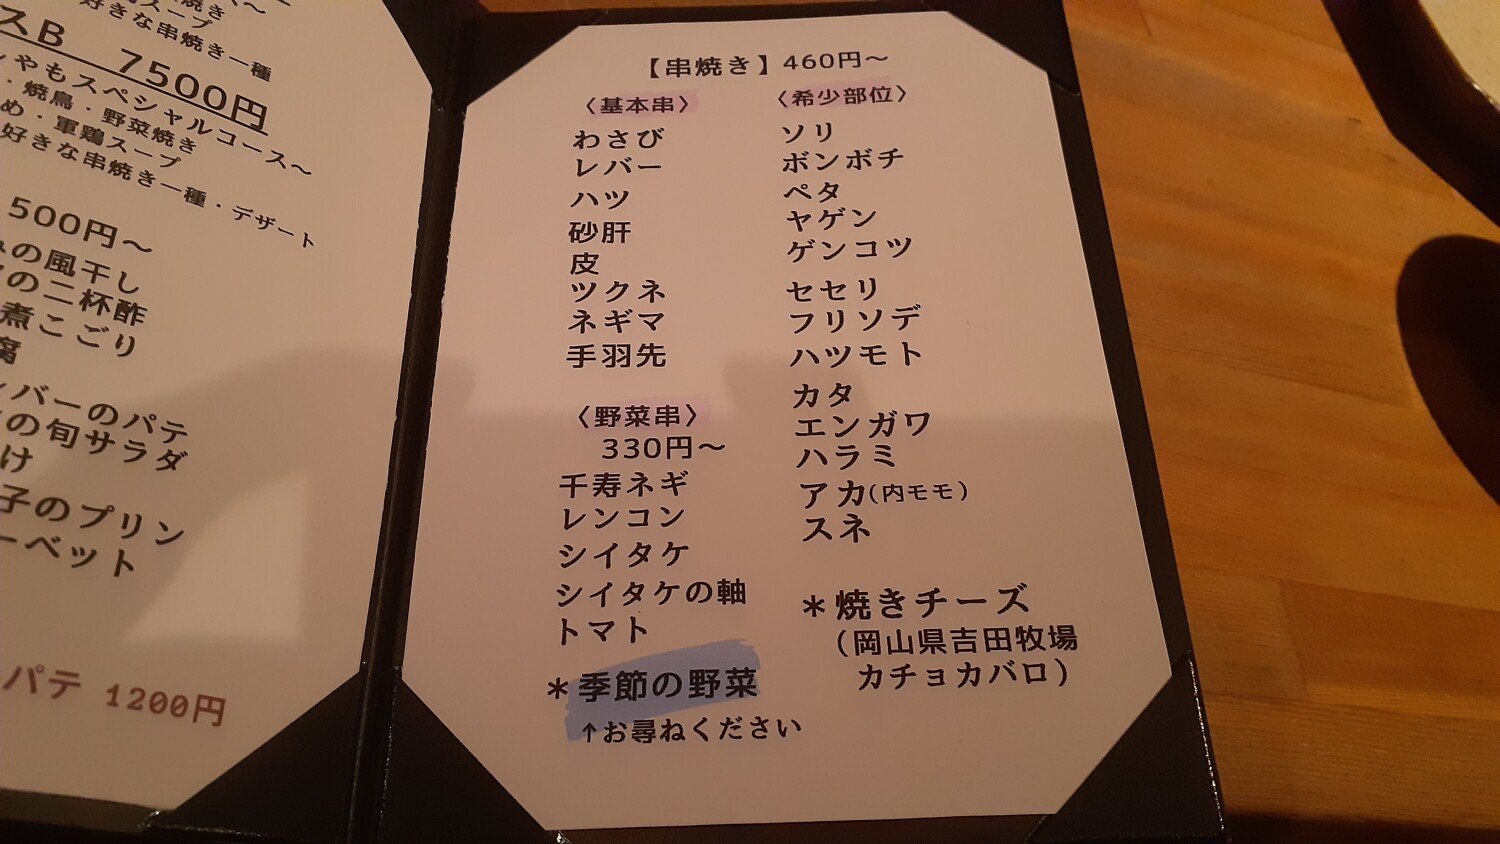 好きな串焼き一種
スB 7500円
しゃもスペシャルコース〜
・焼鳥・野菜焼き
め・軍鶏スープ
好きな串焼き一種・デザート
500円〜
の風干し
の二杯酢
煮こごり
腐
バーのパテ
の旬サラダ
け
子のプリン
ーベット
パテ 1200円
【串焼き】460円〜
〈基本串〉
わさび
レバー
ハツ
砂肝
皮
ツクネ
ネギマ
手羽先
〈野菜串〉
330円〜
千寿ネギ
レンコン
シイタケ
シイタケの軸
トマト
＊季節の野菜
↑お尋ねください
〈希少部位〉
ソリ
ボンボチ
ペタ
ヤゲン
ゲンコツ
セセリ
フリソデ
ハツモト
カタ
エンガワ
ハラミ
アカ(内モモ)
スネ
＊焼きチーズ
(岡山県吉田牧場
カチョカバロ)